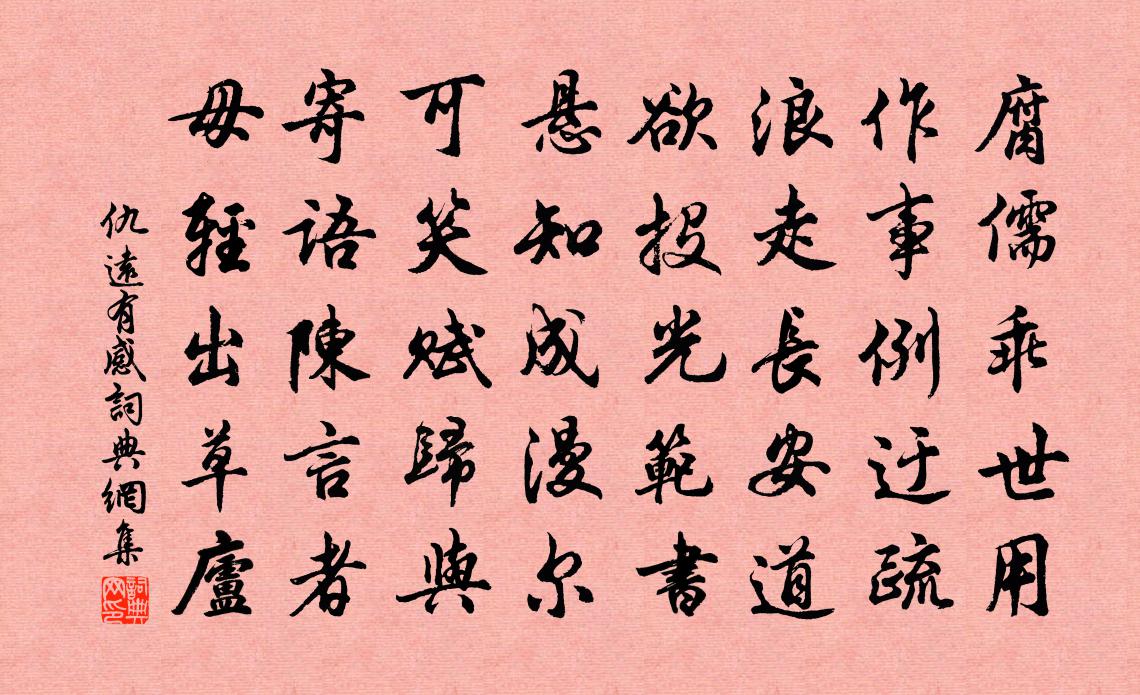 腐儒乖世用
作事例迂疏
浪走長安道
欲投光範書
悬知成漫尔
可笑賦歸與
寄語陳言者
毋輕出草廬
仇遠有感詞典網集
詞典網印